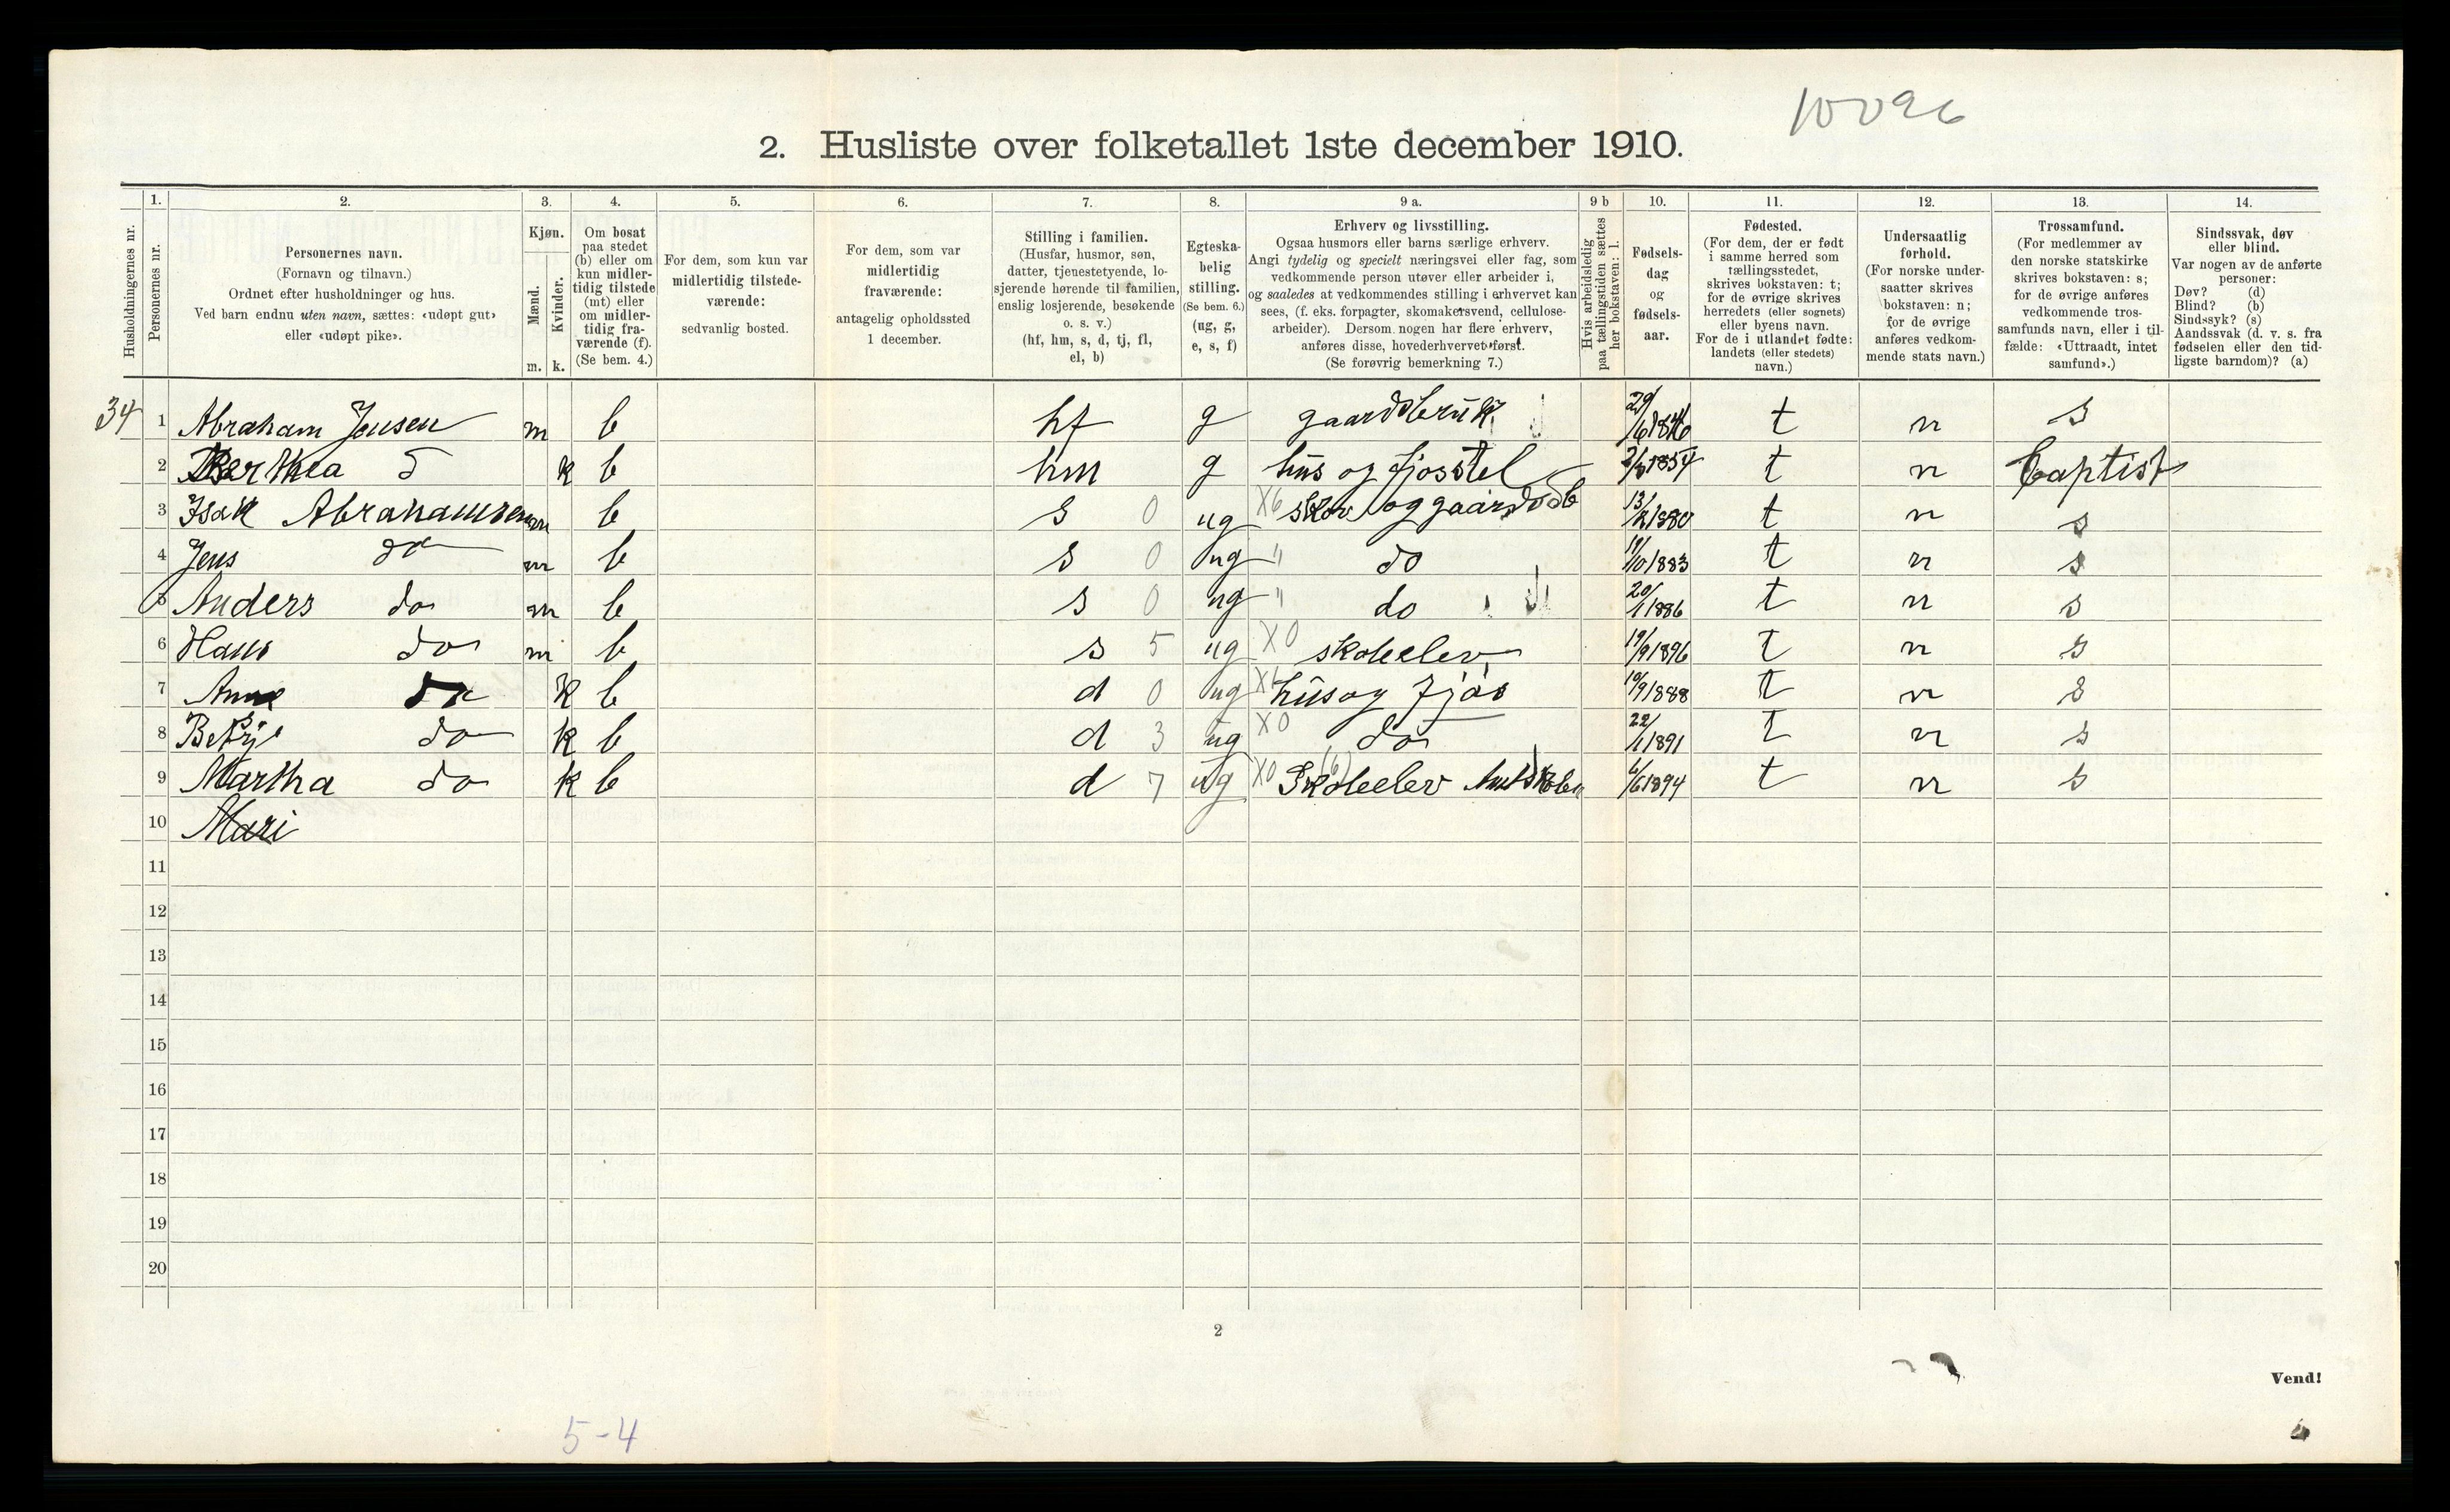 10096
2. Husliste over folketallet 1ste december 1910.
Husholdningernes nr.
1.
Personernes nr.
2.
Personernes navn.
(Fornavn og tilnavn.)
Ordnet efter husholdninger og hus.
Ved barn endnu uten navn, sættes: «udøpt gut»
eller «udøpt pike».
3.
Kjøn.
Mænd.
Kvinder.
m. k.
4.
Om bosat
paa stedet
(b) eller om
kun midler-
tidig tilstede
(mt) eller
om midler-
tidig fra-
værende (f).
(Se bem. 4.)
5.
For dem, som kun var
midlertidig tilstede-
værende:
sedvanlig bosted.
6.
For dem, som var
midlertidig
fraværende:
antagelig opholdssted
1 december.
7.
Stilling i familien.
(Husfar, husmor, søn,
datter, tjenestetyende, lo-
sjerende hørende til familien,
enslig losjerende, besøkende
o. s. v.)
(hf, hm, s, d, tj, fl,
el, b)
8.
Egteska-
belig
stilling.
(Se bem. 6.)
(ug, g,
e, s, f)
9 a.
Erhverv og livsstilling.
Ogsaa husmors eller barns særlige erhverv.
Angi tydelig og specielt næringsvei eller fag, som
vedkommende person utøver eller arbeider i,
og saaledes at vedkommendes stilling i erhvervet kan
sees, (f. eks. forpagter, skomakersvend, cellulose-
arbeider). Dersom nogen har flere erhverv,
anføres disse, hovederhvervet først.
(Se forøvrig bemerkning 7.)
9 b
Hvis arbeidsledig
paa tællingstiden sættes
her bokstaven: l.
10.
Fødsels-
dag
og
fødsels-
aar.
11.
Fødested.
(For dem, der er født
i samme herred som
tællingsstedet,
skrives bokstaven: t;
for de øvrige skrives
herredets (eller sognets)
eller byens navn.
For de i utlandet fødte:
landets (eller stedets)
navn.)
12.
Undersaatlig
forhold.
(For norske under-
saatter skrives
bokstaven: n;
for de øvrige
anføres vedkom-
mende stats navn.)
13.
Trossamfund.
(For medlemmer av
den norske statskirke
skrives bokstaven: s;
for de øvrige anføres
vedkommende tros-
samfunds navn, eller i til-
fælde: «Uttraadt, intet
samfund».)
14.
Sindssvak, døv
eller blind.
Var nogen av de anførte
personer:
Døv? (d)
Blind? (b)
Sindssyk? (s)
Aandssvak (d. v. s. fra
fødselen eller den tid-
ligste barndom)? (a)
34 1 Abraham Jensen m b hf g gaardsbruk 29/6 1846 t n s
2 Berthea d k b hm g hus og fjosstel 1854 t n baptist
3 Isak Abrahamsen m b s 0 ug X6 skov og gaardsb 13/2 1880 t n s
4 Jens do m b s 0 ug " do 11/10 1883 t n s
5 Anders do m b s 0 ug " do 20/1 1886 t n s
6 Hans do m b s 5 ug X0 skoleelev 19/9 1896 t n s
7 Anne do k b d 0 ug hus og fjøs 10/9 1888 t n s
8 do k b d 3 ug X0 do 22/1 1891 t n s
9 Martha do k b d 7 ug X0 (6) Skoleelev 6/6 1894 t n s
10 Mari
11
12
13
14
15
16
17
18
19
20
2
Vend!
5-4